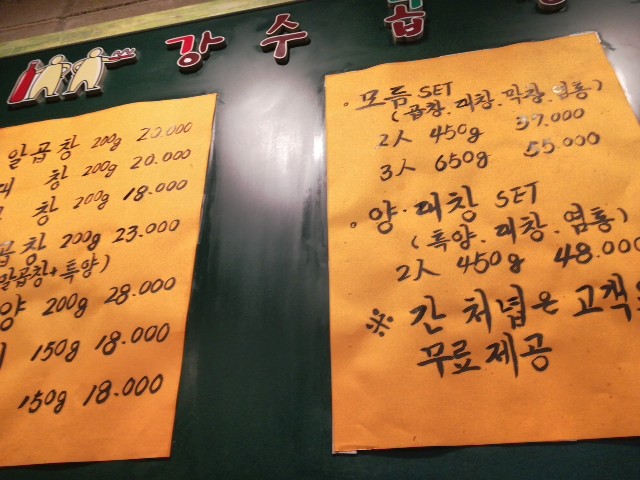 강수곱
알곱창 200g 20.000
창 200g 20.000
창 200g 18.000
곱창 200g 23.000
알곱창+특양)
양 200g 28.000
150g 18.000
150g 18.000
• 모듬 SET
(곱창.대창.막창.염통)
2人 450g 39.000
3人 650g 55.000
• 양.대창 SET
(특양.대창.염통)
2人 450g 48.000
※ 간 처녑은 고객
무료제공